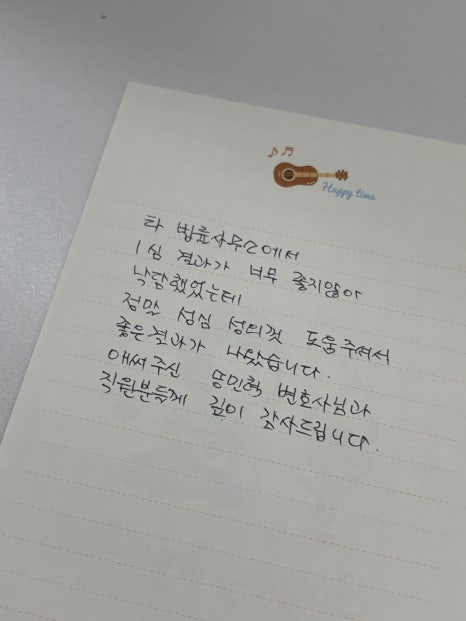 Happy time
타 법률사무소에서
1심 결과가 너무 좋지않아
낙담했었는데
정말 성심 성의껏 도움주셔서
좋은결과가 나왔습니다.
애써주신 양민혁 변호사님과
직원분들께 깊이 감사드립니다.